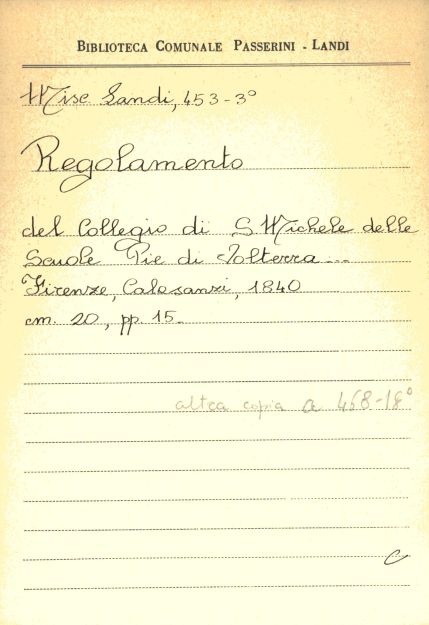 BIBLIOTECA COMUNALE PASSERINI - LANDI
Misc Landi, 453-3°
Regolamento
del Collegio di S. Michele delle
Scuole Pie di Volterra...
Firenze, Calasanzi, 1840
cm. 20, pp. 15.
altra copia a 468-18°
C